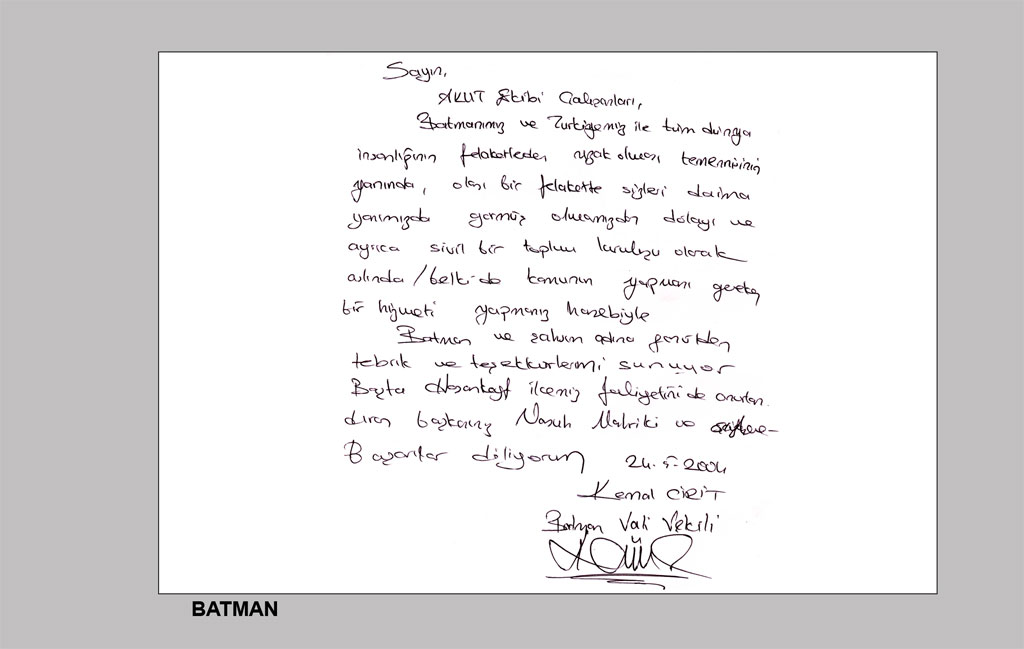 Sayın,
AKUT Ekibi Çalışanları,
Batmanımız ve Türkiyemiz ile tüm dünya
insanlığının felaketleden uzak olması temennisinin
yanında, olası bir felakette sizleri daima
yanımızda görmüş olmamızdan dolayı ve
ayrıca sivil bir toplum kuruluşu olarak
aslında / belki-de kamunun yapması gereken
bir hizmeti yapmanız hasebiyle
Batman ve şahsım adına gönülden
tebrik ve teşekkürlerimi sunuyor
Başta Hasankeyf ilçemiz faliyetini de onurlan
dıran başkanınız Nasuh Mahruki ve
Başarılar diliyorum 24-5-2004
Kemal CİRİT
Batman Vali Vekili
BATMAN